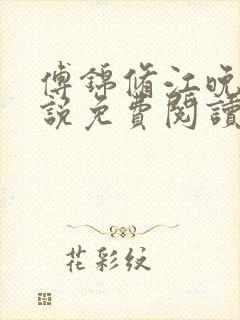 傅锦修江晚
説免費閱讀
花彩纹